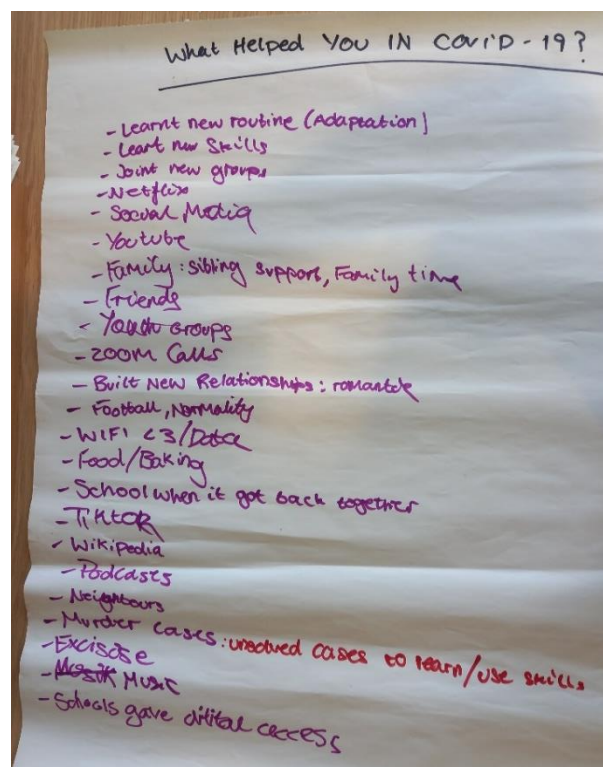 What Helped You IN COViD-19?
- Learnt new routine (Adaptation)
- Leart new Skills
- Joint new groups
- Netflix
- Social Media
- Youtube
- Family: sibling support, Family time
- Friends
- Youth Groups
- ZOOM Calls
- Built New Relationships: romantic
- Football, Normality
- WIFI <3/Data
- Food/Baking
- School when it got back together
- TikTok
- Wikipedia
- Podcasts
- Neighbours
- Murder cases: unsolved cases to learn/use skills
- Excisise
- Music
- Schools gave ditital access